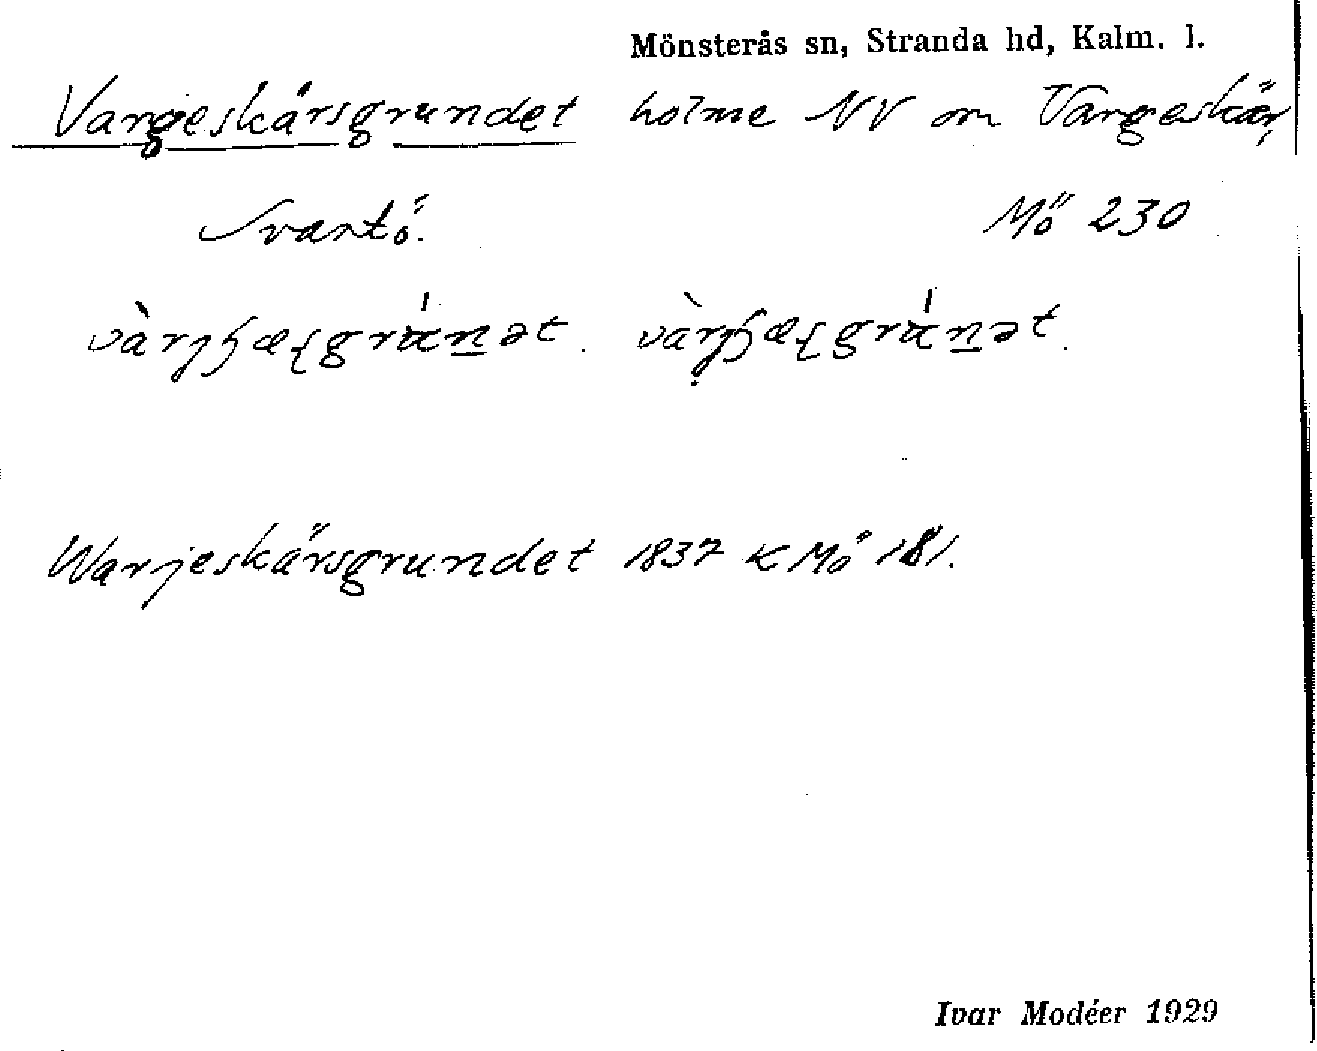 Mönsterås sn, Stranda hd, Kalm. l.
Vargeskärsgrundet holme NV om Vargeskär,
Svartö. Mö 230
Warjeskärsgrundet 1837 K Mö 181.
Ivar Modéer 1929